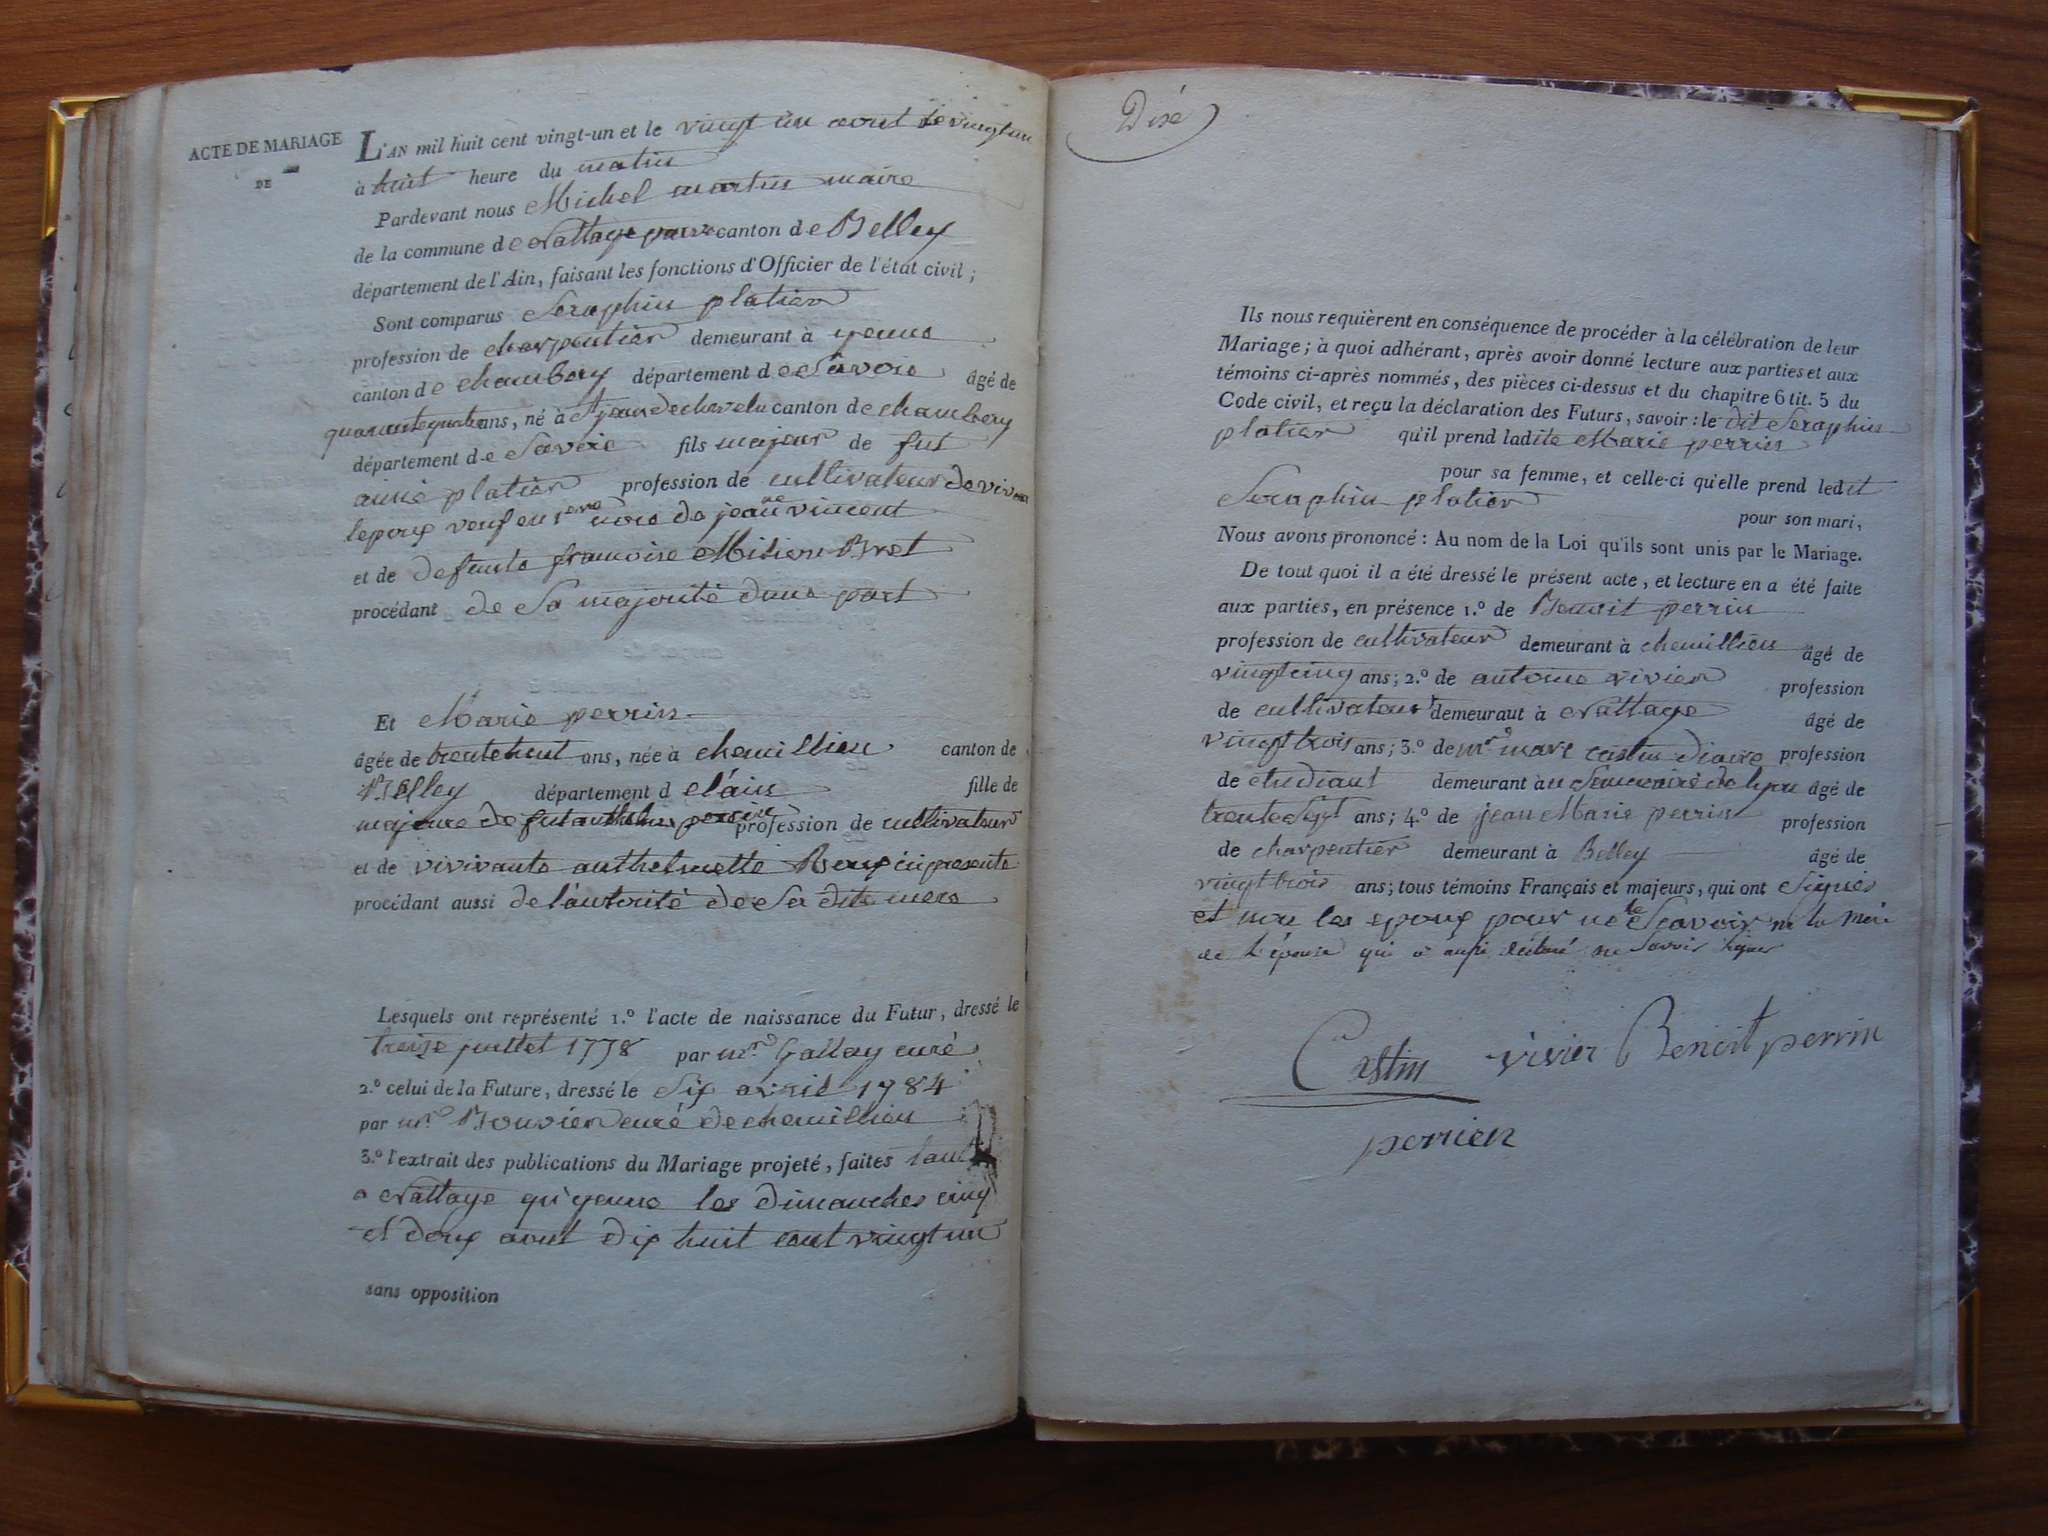 ACTE DE MARIAGE
DE
L'AN mil huit cent vingt-un et le vingt un aout
à huit heure du matin
Pardevant nous Michel martin maire
de la commune de canton de Belley
département de l'Ain, faisant les fonctions d'Officier de l'état civil ;
Sont comparus Seraphin platier
profession de charpentier demeurant à yenne
canton de chambery département de Savoie âgé de
quarante quatre ans, né à St jean de chevelu canton de chambery
département de Savoie fils majeur de fut
aimé platier profession de cultivateur de
lepoux veuf en noce de jeanne vincent
et de defunte francoise Bret
procédant de Sa majorité dune part
Et Marie perrin
âgée de trente huit ans, née à chemillieu canton de
Belley département d el'ain fille de
majeure de fut anthelme perrin profession de cultivateur
et de vivivante anthelmette ici presente
procédant aussi de l'autorité de Sa dite mere
Lesquels ont représenté 1.º l'acte de naissance du Futur, dressé le
treize juillet 1778 par mr. Gallay curé
2.º celui de la Future, dressé le Six avril 1784
par mr. Bouvier curé de chemillieu
3.º l'extrait des publications du Mariage projeté, faites tant
a nattage qu'yenne les dimanches cinq
et aout dix huit cent vingt un
sans opposition
Ils nous requièrent en conséquence de procéder à la célébration de leur
Mariage ; à quoi adhérant, après avoir donné lecture aux parties et aux
témoins ci-après nommés, des pièces ci-dessus et du chapitre 6 tit. 5 du
Code civil, et reçu la déclaration des Futurs, savoir : le dit Seraphin
platier qu'il prend ladite Marie perrin
pour sa femme, et celle-ci qu'elle prend ledit
Seraphin platier
pour son mari,
Nous avons prononcé : Au nom de la Loi qu'ils sont unis par le Mariage.
De tout quoi il a été dressé le présent acte, et lecture en a été faite
aux parties, en présence 1.º de Benoit perrin
profession de cultivateur demeurant à chemillieu âgé de
vingt cinq ans ; 2.º de antoine vivier profession
de cultivateur demeurant à nattage âgé de
vingt trois ans ; 3.º de mr marc castin diacre profession
de etudiant demeurant au Seminaire de lyon âgé de
trente Sept ans ; 4.º de jean Marie perrin profession
de charpentier demeurant à Belley âgé de
vingt trois ans ; tous témoins Français et majeurs, qui ont Signés
et non les epoux pour ne le Scavoir ni la mere
de l'épouse qui a aussi déclaré ne Savoir signer
Castin vivier Benoit perrin
perrien